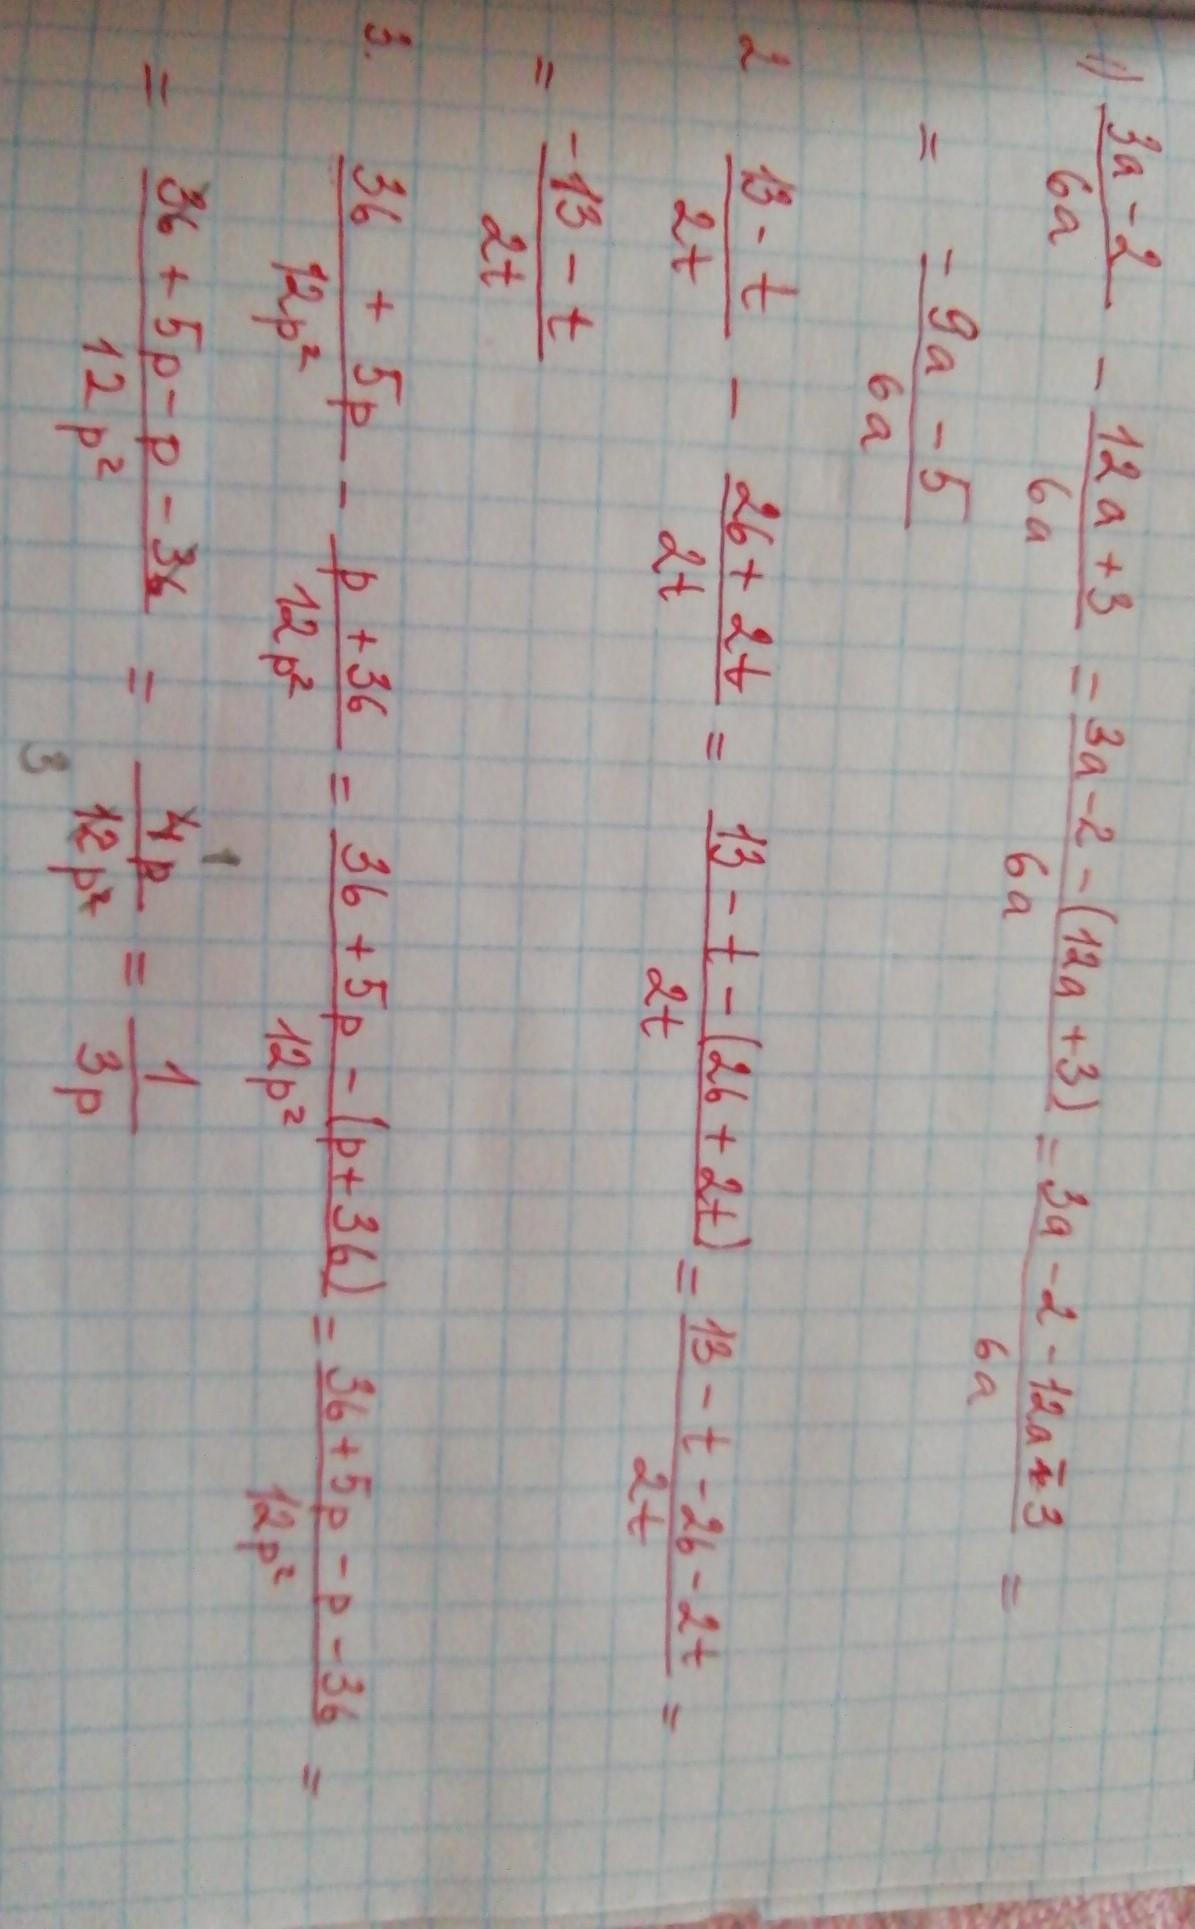 1) (3a - 2)/(6a) - (12a + 3)/(6a) = (3a - 2 - (12a + 3))/(6a) = (3a - 2 - 12a - 3)/(6a) =
= (- 9a - 5)/(6a)
2 (13 - t)/(2t) - (26 + 2t)/(2t) = (13 - t - (26 + 2t))/(2t) = (13 - t - 26 - 2t)/(2t) =
= (-13 - t)/(2t)
3. (36 + 5p)/(12p²) - (p + 36)/(12p²) = (36 + 5p - (p + 36))/(12p²) = (36 + 5p - p - 36)/(12p²) =
= (36 + 5p - p - 36)/(12p²) = (4p 1)/(12p² 3) = 1/(3p)